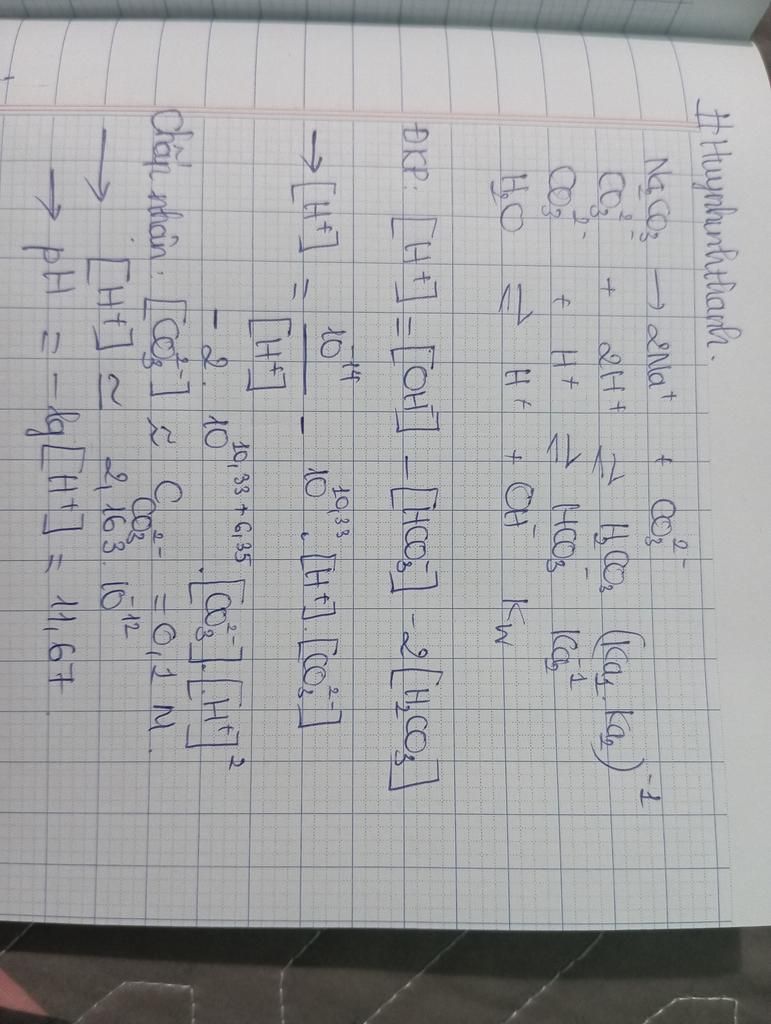 # Huynhnhthanh.
Na₂CO₃ → 2Na⁺ + CO₃²⁻
CO₃²⁻ + 2H⁺ ⇌ H₂CO₃ (Ka₁.Ka₂)⁻¹
CO₃²⁻ + H⁺ ⇌ HCO₃⁻ Ka₂⁻¹
H₂O ⇌ H⁺ + OH⁻ Kw
ĐKP: [H⁺] = [OH⁻] - [HCO₃⁻] - 2[H₂CO₃]
→ [H⁺] = 10⁻¹⁴/[H⁺] - 10^10,33 . [H⁺].[CO₃²⁻]
- 2. 10^10,33 + 6,35 . [CO₃²⁻].[H⁺]²
Chấp nhận: [CO₃²⁻] ≈ C CO₃²⁻ = 0,1 M.
→ [H⁺] ≃ 2,163.10⁻¹²
→ pH = -lg[H⁺] = 11,67